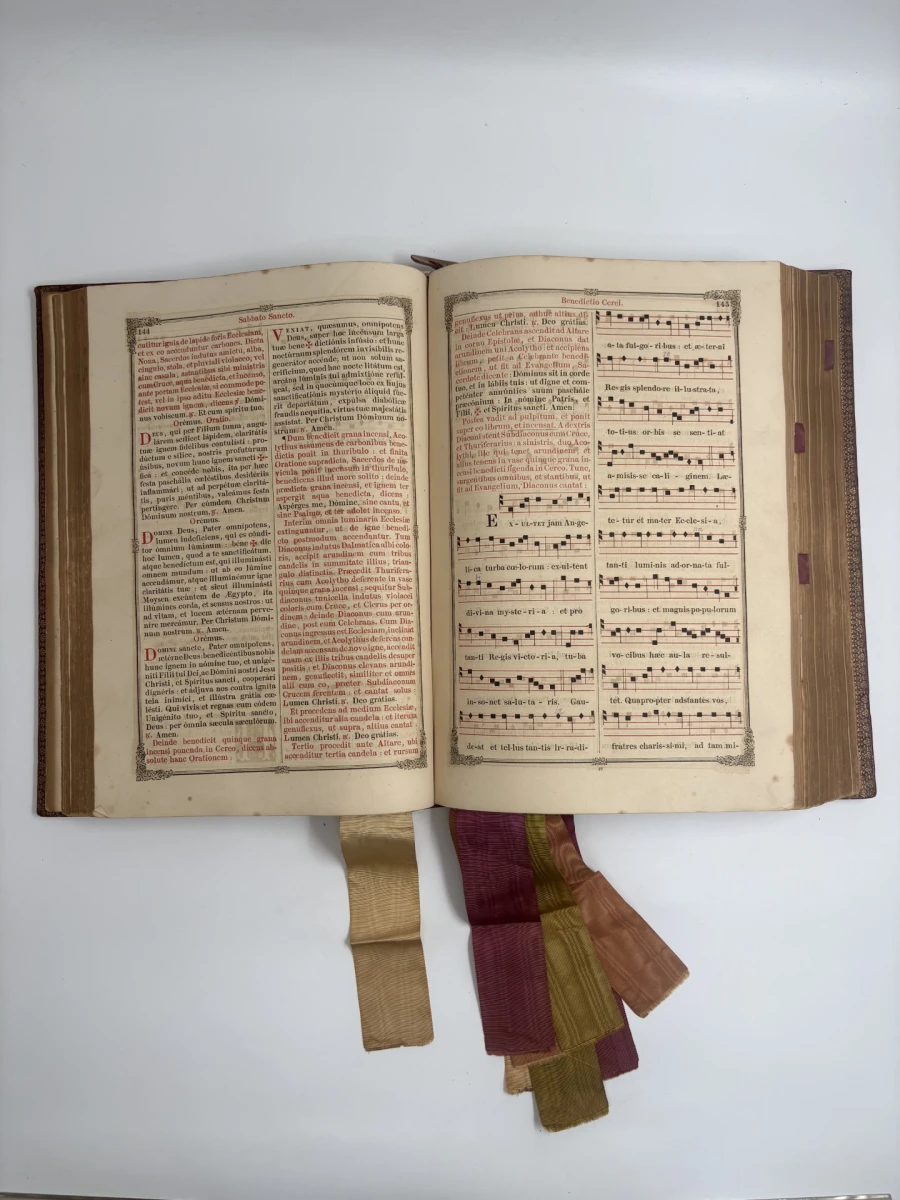 144
Sabbato Sancto.
cutitur ignis de lapide foris Ecclesiam,
et ex eo accenduntur carbones. Dicta
Nona, Sacerdos indutus amictu, alba,
cingulo, stola, et pluviali violaceo, vel
sine casula, astantibus sibi ministris
cum Cruce, aqua benedicta, et incenso,
ante portam Ecclesiæ, si commode po-
test, vel in ipso aditu Ecclesiæ bene-
dicit novum ignem, dicens ℣. Dómi-
nus vobíscum. ℟. Et cum spíritu tuo.
Orémus. Oratio.
DEUS, qui per Fílium tuum, angu-
lárem scílicet lápidem, claritátis
tuæ ignem fidélibus contulísti : pro-
dúctum e sílice, nostris profutúrum
úsibus, novum hunc ignem sanctí ✠
fica : et concéde nobis, ita per hæc
festa paschália cœléstibus desidériis
inflammári, ut ad perpétuæ claritá-
tis, puris méntibus, valeámus festa
pertíngere. Per eúmdem Christum
Dóminum nostrum. ℟. Amen.
Orémus.
DOMINE Deus, Pater omnípotens,
lumen indefíciens, qui es cóndi-
tor ómnium lúminum : béne ✠ dic
hoc lumen, quod a te sanctificátum,
atque benedíctum est, qui illuminásti
omnem mundum : ut ab eo lúmine
accendámur, atque illuminémur igne
claritátis tuæ : et sicut illuminásti
Móysen exeúntem de Ægypto, ita
illúmines corda, et sensus nostros : ut
ad vitam, et lucem ætérnam perve-
níre mereámur. Per Christum Dómi-
num nostrum. ℟. Amen.
Orémus.
DOMINE sancte, Pater omnípotens,
ætérne Deus: benedicéntibus nobis
hunc ignem in nómine tuo, et unigé-
niti Fílii tui Dei, ac Dómini nostri Jesu
Christi, et Spíritus sancti, cooperári
dignéris : et ádjuva nos contra igníta
tela inimíci, et illústra grátia cœ-
lésti. Qui vivis et regnas cum eódem
Unigénito tuo, et Spíritu sancto,
Deus : per ómnia sǽcula sæculórum.
℟. Amen.
Deinde benedicit quinque grana
incensi ponenda in Cereo, dicens ab-
solute hanc Orationem :
VENIAT, quǽsumus, omnípotens
Deus, super hoc incénsum larga
tuæ bene ✠ dictiónis infúsio : et hunc
noctúrnum splendórem invisíbilis re-
generátor accénde; ut non solum sa-
crifícium, quod hac nocte litátum est,
arcána lúminis tui admixtióne reful-
geat; sed in quocúmque loco ex hujus
sanctificatiónis mystério áliquid fúe-
rit deportátum, expúlsa diabólicæ
fraudis nequítia, virtus tuæ majestátis
assístat. Per Christum Dóminum no-
strum. ℟. Amen.
Dum benedicit grana incensi, Aco-
lythus assumens de carbonibus bene-
dictis ponit in thuribulo : et finita
Oratione supradicta, Sacerdos de na-
vicula ponit incensum in thuribulo,
benedicens illud more solito : deinde
prædicta grana incensi, et ignem ter
aspergit aqua benedicta, dicens :
Aspérges me, Dómine, sine cantu, et
sine Psalmo, et ter adolet incenso.
Interim omnia luminaria Ecclesiæ
extinguuntur, ut de igne benedi-
cto postmodum accendantur. Tum
Diaconus indutus Dalmatica albi colo-
ris, accipit arundinem cum tribus
candelis in summitate illius, trian-
gulo distinctis. Præcedit Thurifera-
rius cum Acolytho deferente in vase
quinque grana incensi : sequitur Sub-
diaconus tunicella indutus violacei
coloris cum Cruce, et Clerus per or-
dinem : deinde Diaconus cum arun-
dine, post eum Celebrans. Cum Dia-
conus ingressus est Ecclesiam, inclinat
arundinem, et Acolythus deferens can-
delam accensam de novo igne, accendit
unam ex illis tribus candelis desuper
positis : et Diaconus elevans arundi-
nem, genuflectit, similiter et omnes
alii cum eo, præter Subdiaconum
Crucem ferentem : et cantat solus :
Lumen Christi. ℟. Deo grátias.
Et procedens ad medium Ecclesiæ,
ibi accenditur alia candela : et iterum
genuflexus, ut supra, altius cantat :
Lumen Christi. ℟. Deo grátias.
Tertio procedit ante Altare, ubi
accenditur tertia candela : et rursum
Benedictio Cerei.
145
genuflexus ut prius, adhuc altius di-
cit : Lumen Christi. ℟. Deo grátias.
Deinde Celebrans accedit ad Altare
in cornu Epistolæ, et Diaconus dat
arundinem uni Acolytho : et accipiens
librum petit a Celebrante benedi-
ctionem, ut fit ad Evangelium, Sa-
cerdote dicente : Dóminus sit in corde
tuo, et in lábiis tuis : ut digne et com-
peténter annúnties suum paschále
præcónium : In nómine Patris, et
Fílii, ✠ et Spíritus sancti. Amen.
Postea vadit ad pulpitum, et ponit
super eo librum, et incensat. A dextris
Diaconi stent Subdiaconus cum Cruce,
et Thuriferarius : a sinistris, duo Aco-
lythi, ille qui tenet arundinem, et
alius tenens in vase quinque grana in-
censi benedicti figenda in Cereo. Tunc,
surgentibus omnibus, et stantibus, ut
fit ad Evangelium, Diaconus cantat :
E X - UL-TET jam An-ge-
li-ca turba cœ-lo-rum : ex-ul-tent
di-vi-na my-ste-ri-a : et pro
tan-ti Re-gis vi-cto-ri-a, tu-ba
in-so-net sa-lu-ta-ris. Gau-
de-at et tel-lus tan-tis ir-ra-di-
a-ta ful-go-ri-bus : et æ-ter-ni
Re-gis splendo-re il-lu-stra-ta,
to-ti-us or-bis se sen-ti-at
a-misis-se ca-li-ginem. Læ-
te-tur et ma-ter Ec-cle-si-a,
tan-ti lumi-nis ad-or-na-ta ful-
go-ri-bus : et magnis po-pu-lorum
vo-cibus hæc au-la re-sul-
tet. Quaprop-ter adstántes vos,
fratres charis-si-mi, ad tam mi-